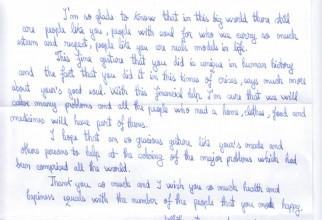 I'm so glads to know that in this big world there still
are people like you, people with soul for who we carry so much
steam and respect, people like you are reals models in life.
This fine gesture that you did is unique in human history
and the fact that you did it in this times of crises, says much more
about your's good soul. With this financial help I'm sure that we will
solve many problems and all the people who need a home, clothes, food and
medicines will have part of thems.
I hope that an so gracious gesture like your's made and
others persons to help at the solving of the major problems which had
been comprised all the world.
Thank you so much and I wish you so much health and
happiness equals with the number of the people that you made happy.